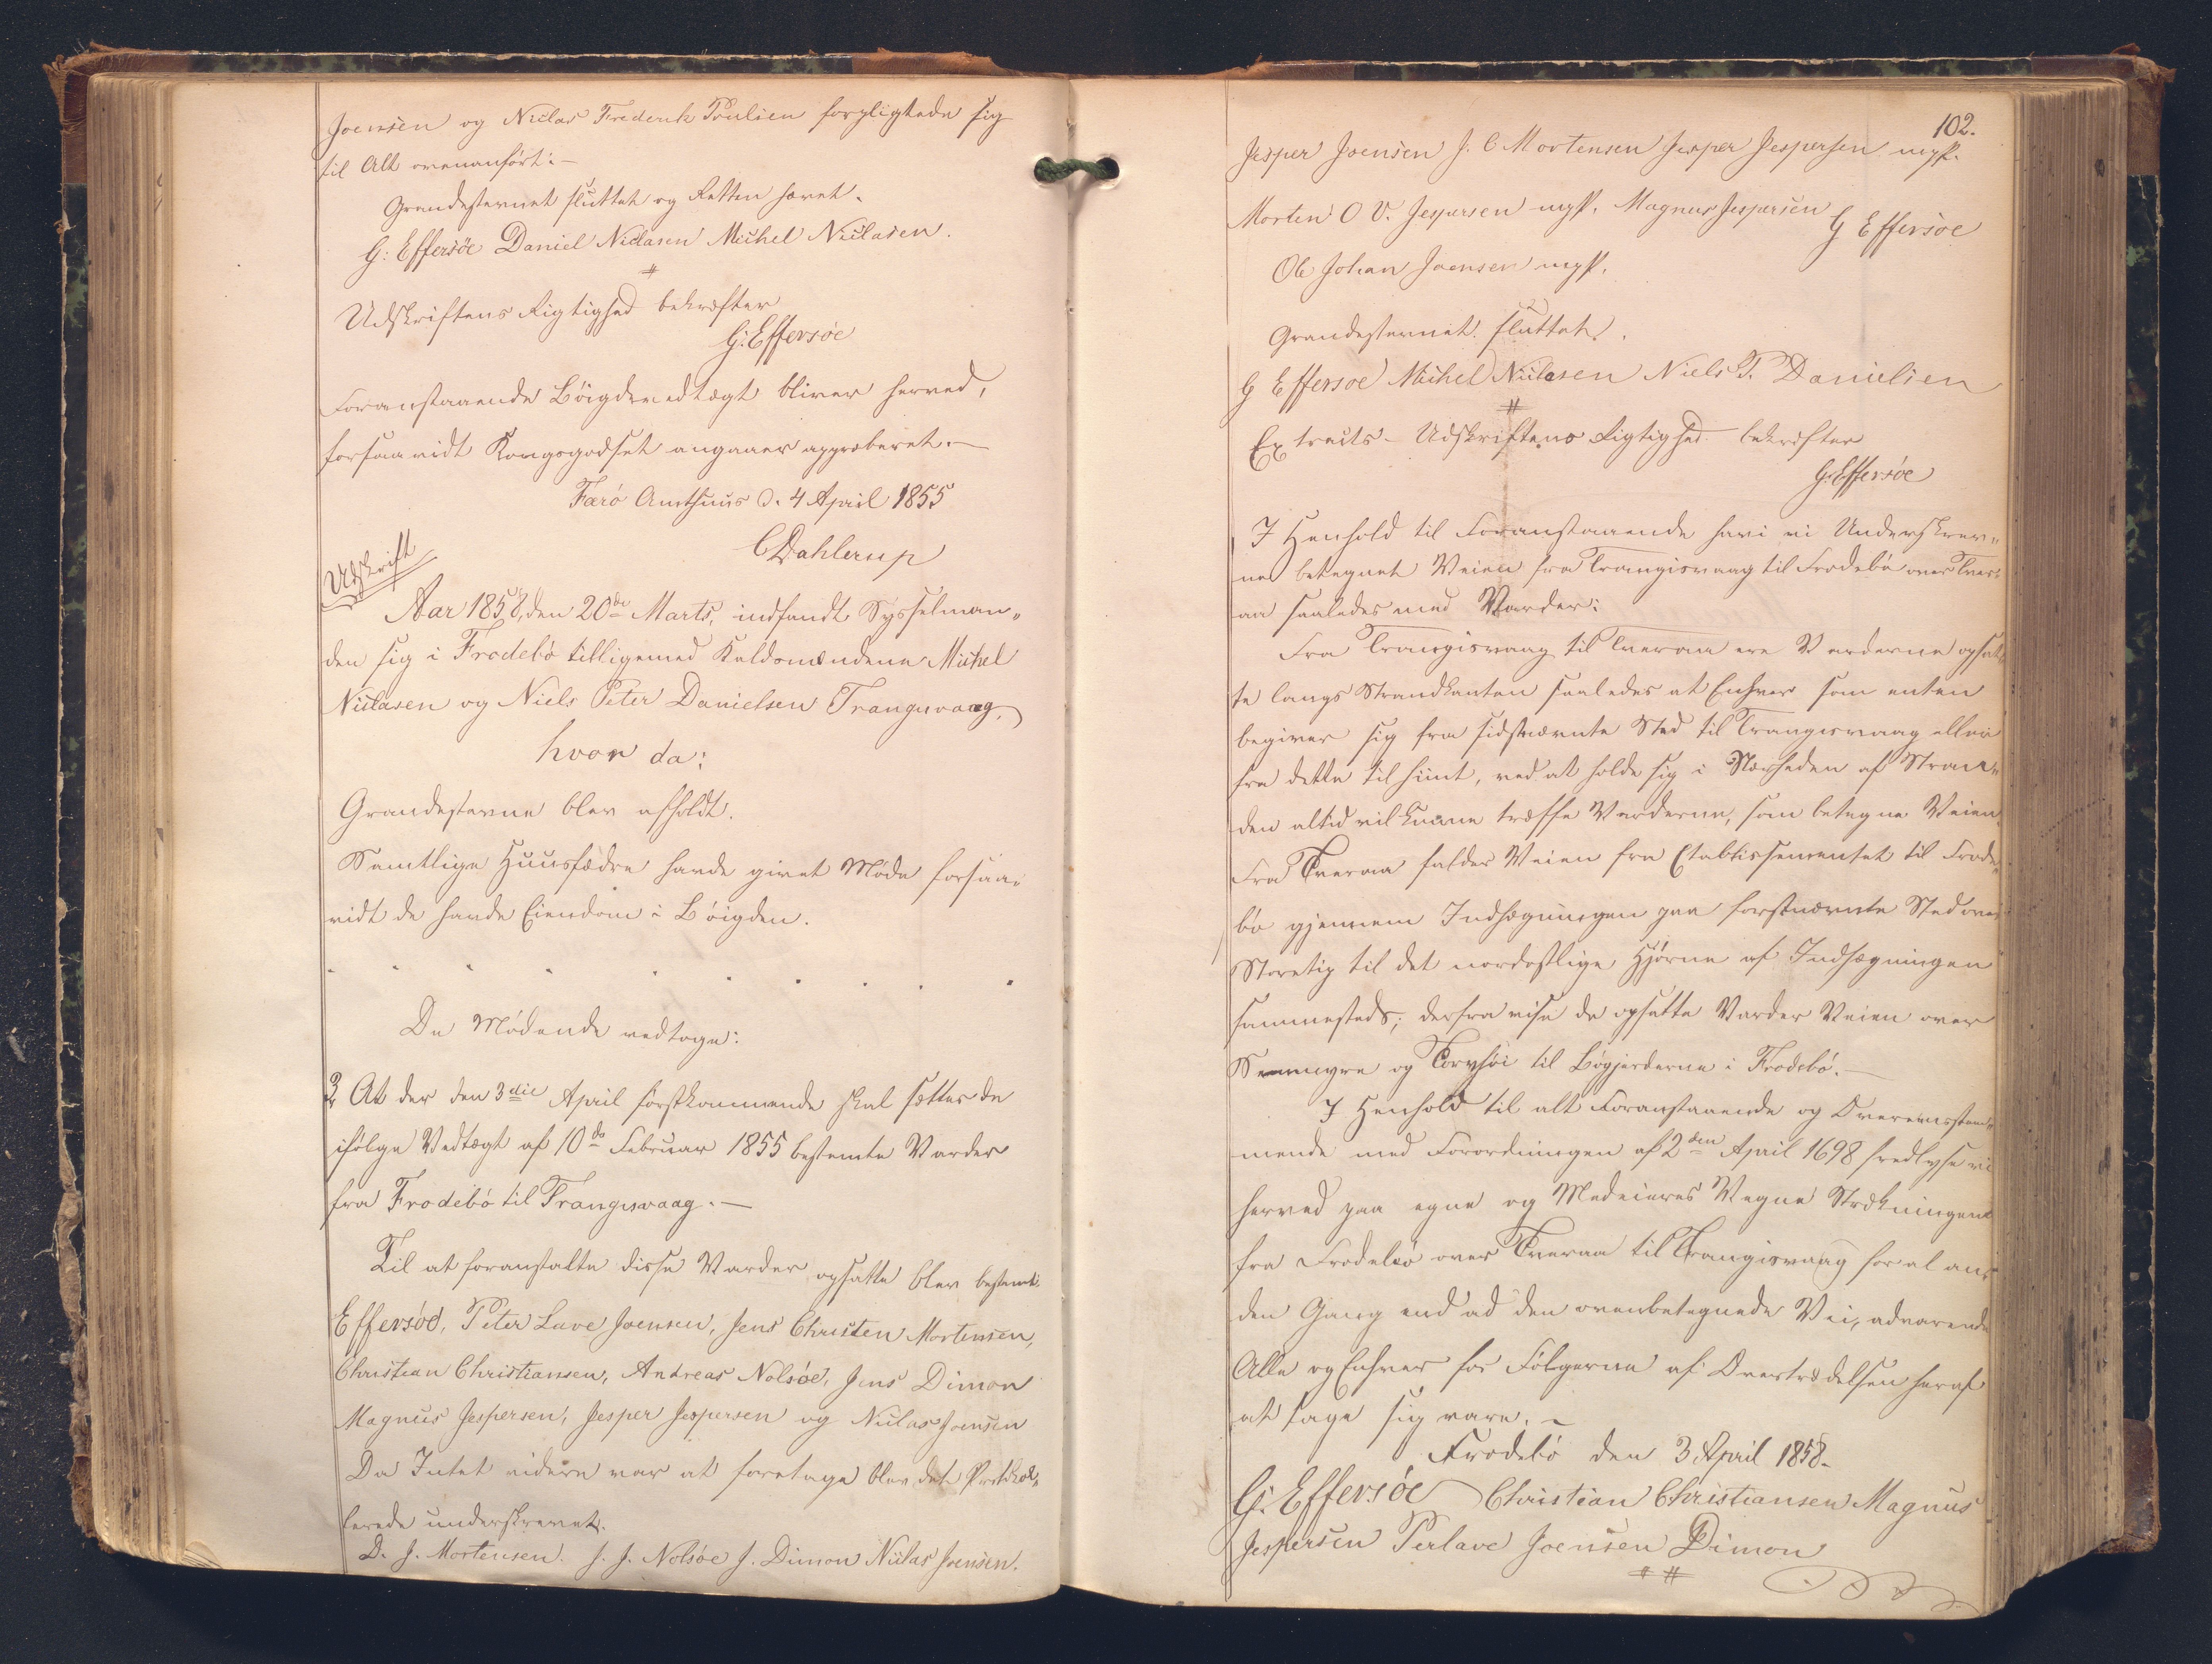 Joensen og Niclas Frederik Poulsen forpligtede sig
til Alt ovenanført:-
Grandestevnet sluttet og Retten hævet.
G: Effersöe Daniel Niclasen Michel Niclasen.
#
Udskriftens Rigtighed bekræfter
G: Effersöe
Foranstaaende Böigdevedtægt bliver herved,
forsaavidt Kongsgodset angaaer approberet.-
Færö Amthuus d. 4 April 1855
CDahlerup
Udskrift
Aar 1858, den 20de Marts, indfandt Sysselman„
den sig i Frodebö tilligemed Kaldsmændene Michel
Niclasen og Niels Peter Danielsen Trangisvaag,
hvor da:
Grandestevne blev afholdt.
Samtlige Huusfædre havde givet Møde forsaa„
vidt de havde Eiendom i Böigden.
De Mødende vedtoge:
2 At der den 3die April förstkommende skal sættes de
ifölge Vedtægt af 10de Februar 1855 bestemte Varder
fra Frodebö til Trangisvaag.-
Til at foranstalte disse Varder opsatte blev bestemt
Effersöe, Peter Lave Joensen, Jens Christen Mortensen,
Christian Christiansen, Andreas Nolsöe, Jens Dimon
Magnus Jespersen, Jesper Jespersen og Niclas Joensen
Da Intet videre var at foretage blev det Protokol„
lerede underskrevet.
D. J. Mortensen. J. J. Nolsöe J. Dimon Niclas Joensen.
102.
Jesper Joensen J. C Mortensen Jesper Jespersen mpp.
Morten O V. Jespersen mpp. Magnus Jespersen
G Effersöe
Ole Johan Joensen mpp.
Grandestevnet sluttet.
G Effersoe Michel Niclasen Niels P. Danielsen
#
Extracts- Udskriftens Rigtighed bekræfter
G: Effersöe
I Henhold til Foranstaaende have vi Underskrev„
ne betegnet Veien fra Trangisvaag til Frodebö over Tver
aa saaledes med Varder:
Fra Trangisvaag til Tveraa ere Varderne opsat
te langs Strandkanten saaledes at Enhver som enten
begiver sig fra sidstnævnte Sted til Trangisvaag eller
fra dette til hiint, ved at holde sig i Nærheden af Stran„
den altid vil kunne træffe Varderne, som betegne Veien
Fra Tveraa falder Veien fra Etablissementet til Frode„
bö gjennem Indhægningen paa førstnævnte Sted over
Storetig til det nordostlige Hjörne af Indhægningen
sammesteds; derfra vise de opsatte Varder Veien over
og Torvhöi til Bögjerderne i Frodebö.-
I Henhold til alt Foranstaaende og Overeensstem„
mende med Forordningen af 2den April 1698 fredlyse vi
herved paa egne og Medeieres Vegne Strækningen
fra Frodebö over Tveraa til Trangisvaag for al an„
den Gang end ad den ovenbetegnede Vei, advarende
Alle og Enhver for Fölgerne af Overtrædelsen heraf
at tage sig vare.-
Frodebö den 3 April 1858.
G: Effersöe Christian Christiansen Magnus
Jespersen Perlave Joensen Dimon
#